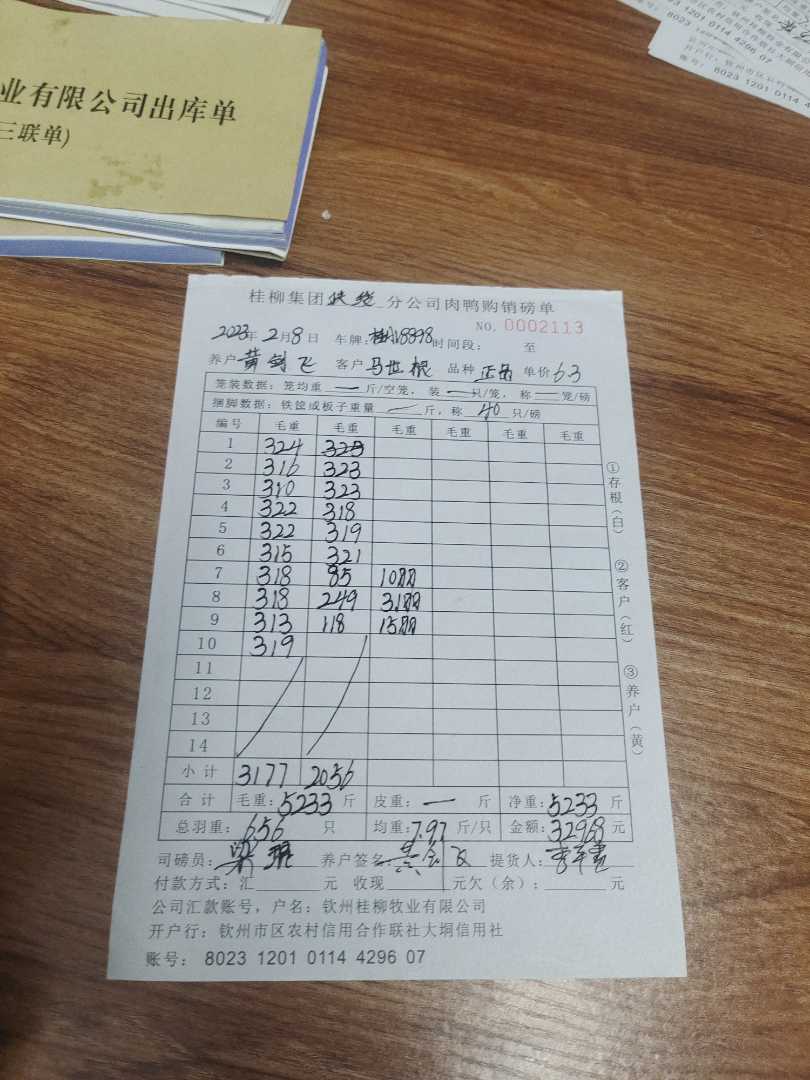 业有限公司出库单
三联单)
8023 1201 0114 4296 07
桂柳集团 分公司肉鸭购销磅单
NO. 0002113
2023年2月8日 车牌: 8898 时间段: 至
养户 黄剑飞 客户 马世根 品种 正品 单价 6.3
笼装数据: 笼均重 一 斤/空笼, 装 一 只/笼, 称 一 笼/磅
捆脚数据: 铁筐或板子重量 一 斤, 称 40 只/磅
编号 毛重 毛重 毛重 毛重 毛重 毛重
1 324
2 316 323
3 310 323
4 322 318
5 322 319
6 315 321
7 318 85
8 318 249
9 313 118
10 319
11
12
13
14
小计 3177 2056
合计 毛重: 5233 斤 皮重: 一 斤 净重: 5233 斤
总羽重: 656 只 均重: 7.97 斤/只 金额: 32968 元
司磅员: 梁琨 养户签名: 提货人:
付款方式: 汇 元 收现 元欠(余): 元
公司汇款账号, 户名: 钦州桂柳牧业有限公司
开户行: 钦州市区农村信用合作联社大垌信用社
账号: 8023 1201 0114 4296 07
①存根(白)
②客户(红)
③养户(黄)